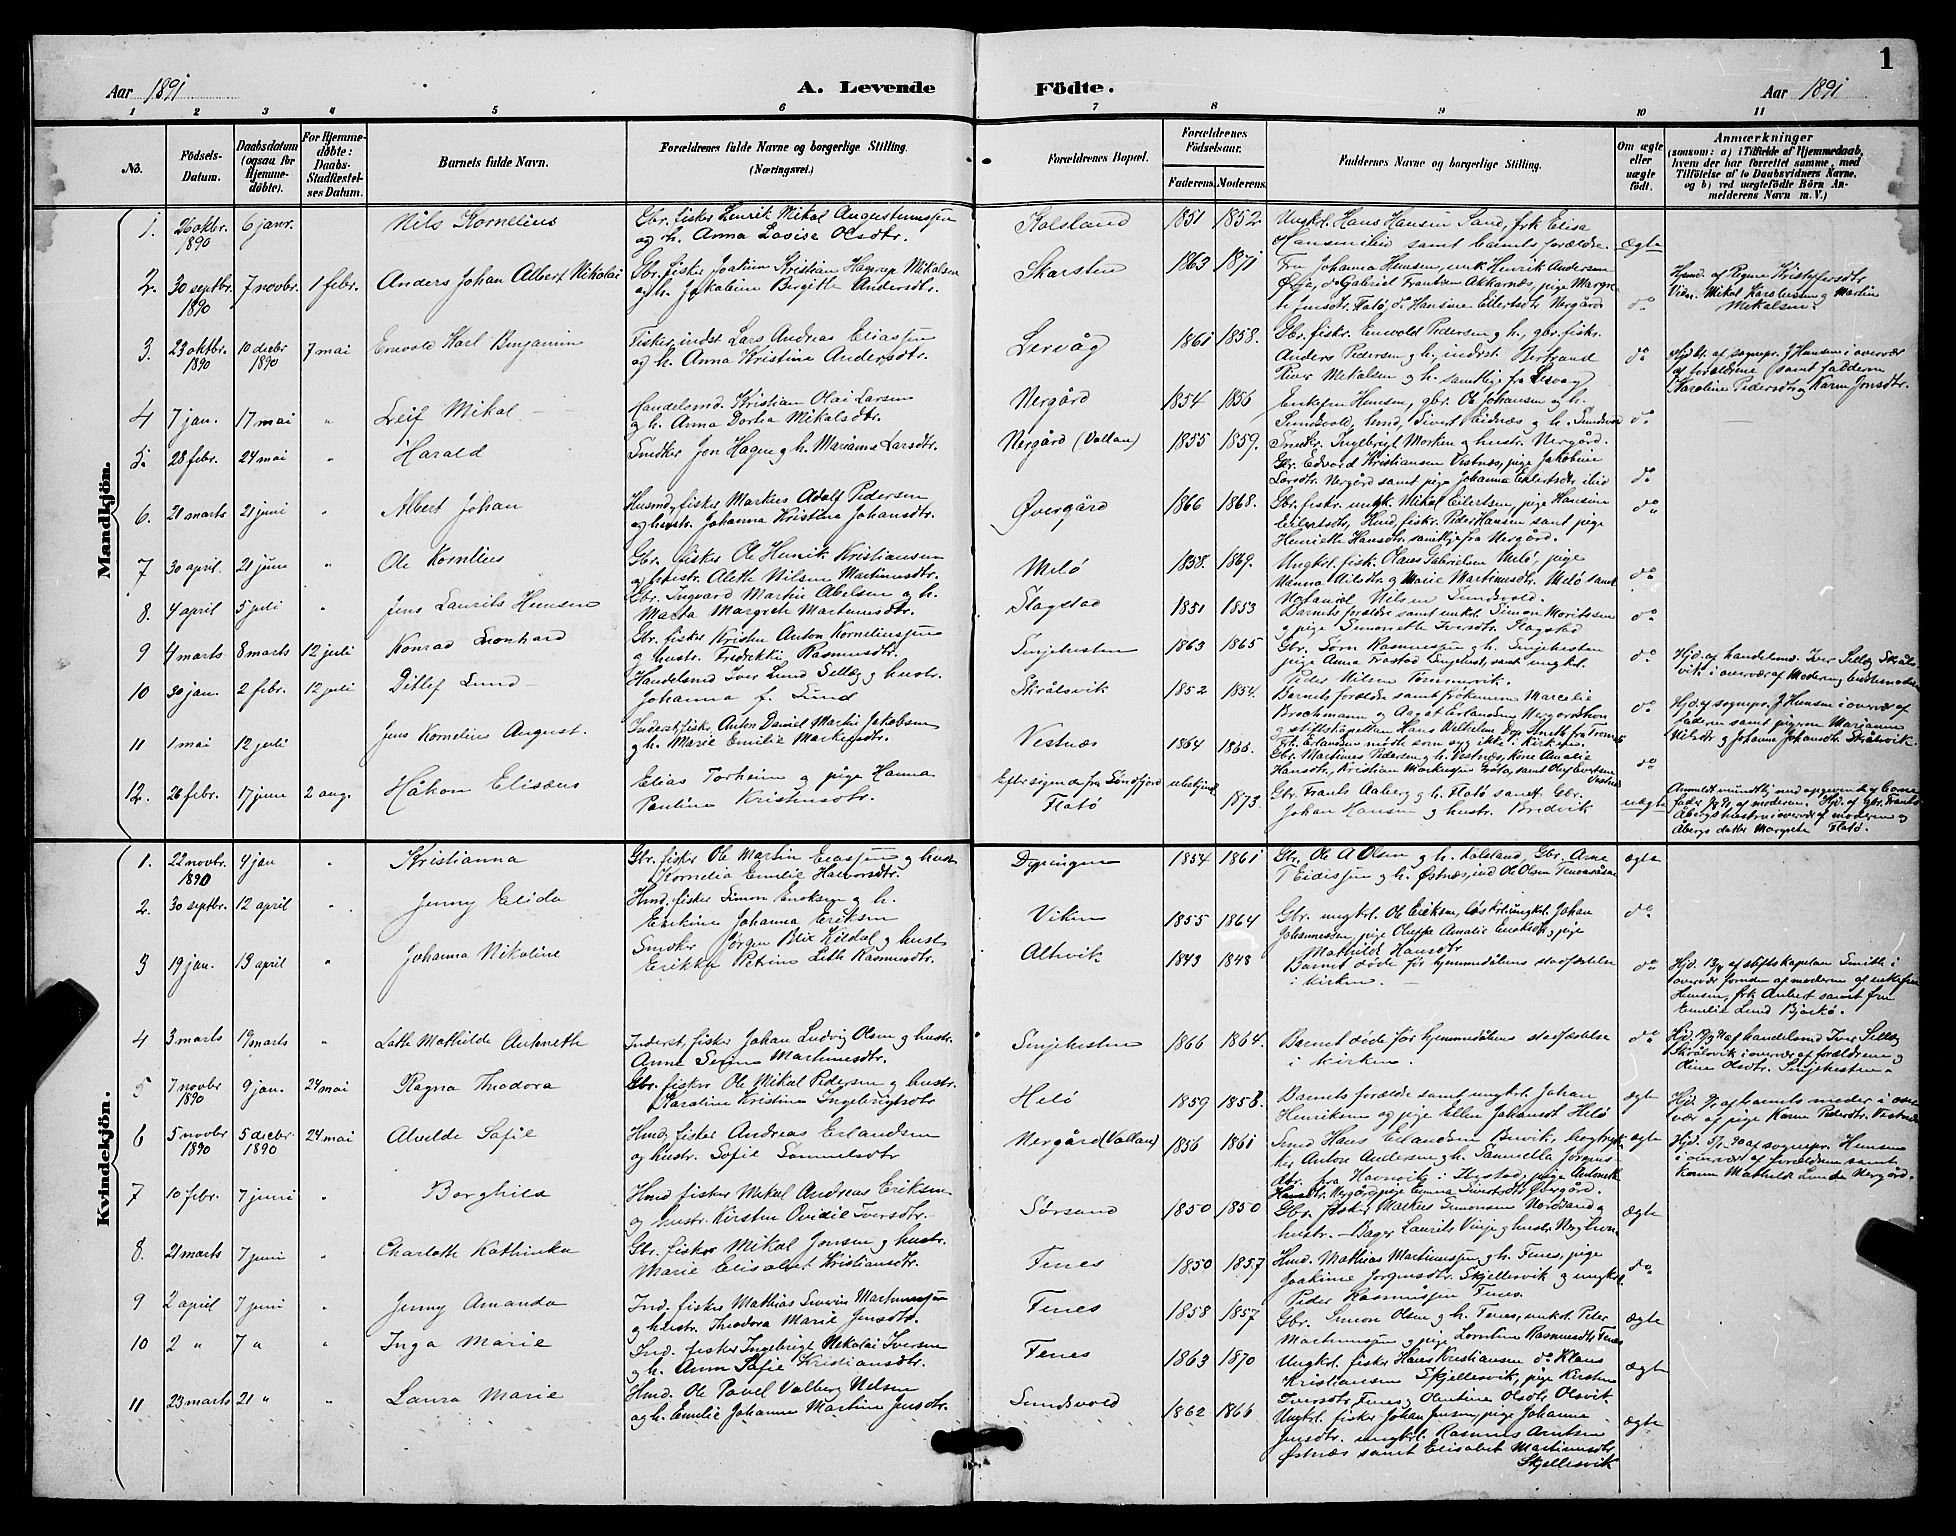 1
Aar 1891
A. Levende Födte.
Aar 1891
1 2 3 4 5 6 7 8 9 10 11
No.
Födsels-Datum.
Daabsdatum (ogsaa för Hjemmedöbte).
For Hjemmedöbte: Daabs-Stadfæstelses Datum.
Barnets fulde Navn.
Forældrenes fulde Navne og borgerlige Stilling. (Næringsvei.)
Forældrenes Bopæl.
Forældrenes Födselsaar.
Faderens. Moderens.
Faddernes Navne og borgerlige Stilling.
Om ægte eller uægte födt.
Anmærkninger
(saasom: a) i Tilfælde af Hjemmedaab,
hvem der har forrettet samme, med
Tilföielse af to Daabsvidners Navne,
og b) ved uægtefödte Börn An-
melderens Navn m. V.)
Mandkjön.
1. 26 oktbr. 1890 6 janr. Nils Kornelius
Gbr. fisker Henrik Mikal Augustinussen
og h. Anna Lovise Olsdtr.
Kolsland 1851 1852
Ungkl. Hans Hansen Sand, frk Elise
samt barnets forældre. ægte
2. 30 septbr. 1890 7 novbr. 1 febr. Anders Johan Albert Nikolai
Gbr. fisker Joakim Kristian Hagerup Mikalsen
og h. Jakobine Bergitte Andersdtr.
Skarsten 1863 1871
Fru Johanna Hensen, unk. Henrik Andersen
d° Gabriel Frantsen Akkarnæs, pige Margre-
the Jensdtr. Flatø, d° Hansine Eilertsdtr. Nergård d°
Hjmd. af Regine Kristofersdtr.
Vidn. Mikal Karstensen og Martin
Mikalsen.
3. 23 oktbr. 1890 10 decbr 1890 7 mai Enevold Karl Benjamin
Fisker, indst Lars Andreas Eliassen
og h. Anna Kristine Andersdtr.
Lervåg 1861 1858.
Gbr. fiskr. Enevold Pedersen og h., gbr. fiskr.
Anders Pedersen og h. inderst. Bertrand
Mikalsen og h. samtlige fra Lervåg d°
Hjdbt. af sognepr. J Hensen i overvær
af forældrene samt faddern
Karoline Pedersdtr og Karen Jonsdtr.
4 7 jan. 17 mai " Leif Mikal
Handelsmd. Kristian Olai Larsen
og h. Anna Dortea Mikalsdtr.
Nergård 1854 1856
Enkefru Hensen, gbr. Ole Johansen og h.
Sundsvold, hmd. Sivert Eidnæs og h. Sundsvold d°
5. 28 febr. 24 mai " Harald
Snedker Jon Hagen og h. Mariane Larsdtr.
Nergård (Vallan) 1855 1859.
Snedkr. Ingebrigt Morken og hustr. Nergård.
Gbr. Edvard Kristiansen Vestnæs, pige Jakobine
Larsdtr. Nergård samt pige Johanna Eilertsdtr ibid d°
6. 21 marts 21 juni " Albert Johan
Husmd, fisker Markus Adolf Pedersen
og hustr. Johanna Kristina Johansdtr.
Øvergård 1866 1868.
Gbr. fiskr. ungk. Mikal Eilertsen, pige Hansine
Eilertsdtr, Hmd, fiskr. Peder Hansen samt pige
Henriette Hansdtr. samtlige fra Nergård. d°
7 30 april. 21 june " Ole Kornelius
Gbr. fisker Ole Henrik Kristiansen
og hustr. Alethe Nilsine Martinusdtr.
Melø 1838 1869.
Ungkl. fisk. Olaus Gabrielsen Melø, pige
Nanna Ailsdtr og Marie Martinusdtr. Melø samt
Notaniel Nilsen Sundsvold. d°
8. 4 april 5 juli " Jens Laurits Hensen
Gbr. Ingvard Martin Abelsen og h.
Marta Margreth Martinusdtr.
Slagstad 1851 1853
Barnets forældre samt unkl. Simon Moritsen
og pige Simonette Iversdtr. Slagstad d°
9 4 marts 8 marts 12 juli Konrad Leonhard
Gbr. fisker Kristen Anton Korneliussen
og hustr. Fredrikke Rasmusdtr.
Senjehesten 1863 1865
Gbr. Sørn Rasmussen og h. Senjehesten
pige Anna samt ungkl.
Peder Nilsen Tømmervik. d°
Hjd. af handelsmd. Iver Selly Skråls-
vik i overvær af Moderen og
10 30 jan. 2 febr. 12 juli Ditlef Lund
Handelsmd Iver Lund Selly og hustr.
Johanna f. Lund
Skrålsvik 1852 1854.
Barnets forældre samt frøknerne Marcelie
Brochmann og Aagot Erlandsen
og stiftskapellan Hans Wilhelm Smith fra Tromsø
Erlandsen mødte som syg ikke i kirken. d°
Hjd. af sognepr. J Hensen i overvær af
faderen samt pigerne Marianne
Nilsdtr og Johanne Johansdtr. Skrålsvik
11 1 mai 12 juli Jens Kornelius August.
Inderst, fiskr. Anton Daniel Martin Jakobsen
og h. Marie Emilie Markusdtr.
Vestnæs 1864
Gbr. Martines Pedersen og h. Vestnæs, Kone Amalie
Hansdtr, Kristian Markussen samt Olaf Evertsen Vestnæs d°
12. 26 febr. 17 june 2 aug. Håkon Elisæus
Elias Torheim og pige Hanna
Pauline Kristensdtr.
Eftersigende fra Søndfjord Flatø ubekjendt 1873
Gbr. Frants Aaberg og h. Flatø samt Gbr.
Johan Hansen og hustr. Bredvik uægte
Anmeldt mundtlig med opgivende af barne-
fader af moderen. Hjd. af Gbr. Frants
Åbergs hustru i overvær af moderen og
Åbergs datter Margrete Flatø.
Kvindekjön.
1. 22 novbr. 1890 4 jan " Kristianna
Gbr. fisker Ole Martin Eliassen og hustr
Kornelia Emilie Halvorsdtr.
Dypingen 1854 1861
Gbr. Ole A Olsen og h. Kolsland, Gbr. Arne
T Eidissen og h. Østnæs, ind Ole Olsen ægte
2. 30 septbr. 12 april " Jenny Elida
Hmd. fisker Simon Enoksen og h.
Erikine Johanna Eriksen
Viken 1855 1864
Gbr. ungkrl. Ole Eriksen, løskrl. ungkrl. Johan
Johannessen, pige Oluffa Amalie Enoksdtr, pige
Mathilde Hansdtr d°
3 19 jan. 13 april " Johanna Nikoline
Smeker Jørgen Blix Kildal og hustr
Erikka Petrine Lethe Rasmusdtr.
Altevik 1843 1848
Barnet døde før hjemmedåbens stadfæstelse
i kirken. d°
Hjd. 13/4 af stiftskapelan Smith i
overvær foruden af moderen af enkefru
Hensen, frk Aubert samt fru
Emilie Lund Bjarkø.
4 3 marts 19 marts " Lette Mathilde Antoneth
Inderst, fisker Johan Ludvig Olsen og hustr.
Anne Martinusdtr.
Senjehesten 1866 1864.
Barnet døde før hjemmedåbens stadfæstelse
i kirken. d°
Hjd. 19/3 91 af handelsmd Iver Selly
Skrålsvik i overvær af forældrene og
Oline Olsdtr. Senjehesten
5 7 novbr 1890 9 jan. 24 mai Ragna Theodora
Gbr. fiskr Ole Mikal Pedersen og hustr.
Karoline Kristine Ingebrigtsdtr
Helø 1859 1858.
Barnets forældre samt ungkrl. Johan
Henriksen og pige Ellen Johansdt Helø ægte
Hjd. af barnets moder i over
vær af pige Karen Pedersdtr. Vestnæs
6 5 novbr 1890 5 decbr 1890 24 mai Alvilde Sofie
Hmd, fisker Andreas Erlandsen
og hustr. Sofie Samuelsdtr
Nergård (Vallan) 1856 1861
Smed Hans Erlandsen Buvik, bogtryk-
ker Anton Andersen og h. Samuella Jørgens-
dtr. fra Havnvik i Ibestad, pige Antonette
Hansdtr. Nergård, pige Emma Sivertsdtr Øvergård. ægte
Hjd. 5/12 90 af sognepr. Hensen
i overvær af forældrene samt
Karen Mathilde Nergård.
7 10 febr. 7 juni " Borghild
Hmd fisker Mikal Andreas Eriksen
og hustr. Kirsten Ovidie Iversdtr.
Sørsand 1850 1850
Gbr. fisker Markus Simonsen Nordsand og
hustr. – Bager Laurits Vinje og hustr. ægte
8. 21 marts 7 juni " Charlotte Kathinka
Gbr. fisker Mikal Jensen og hustr.
Marie Elisabet Kristiansdtr.
Fenes 1850 1857
Hmd. Mathias Martinussen og h. Fenes, pige
Joakime Jørgensdtr. Skjellesvik og ungkrl.
Peder Rasmussen Fenes. d°
9 2 april 7 juni " Jenny Amanda
Ind. fisker Mathias Severin Martinussen
og hustr. Theodora Marie Jensdtr.
Fenes 1858 1857
Gbr. Simon Olsen og h. Fenes, unkrl. Peder
Martinussen og pige Lorntine Rasmusdtr Fenes ægte
10 2 " 7 " " Inga Marie
Ind. fisker Ingebrigt Nikolai Iversen
og h. Anne Sofie Kristiansdtr.
Fenes 1863 1870
Ungkrl. fisker Hans Kristiansen d° Klaus
Kristiansen Skjellesvik, pige Kirsten
Iversdtr. Fenes og Olentine Olsdtr. Olsvik. ægte
11 23 marts 21 " " Laura Marie
Hmd. Ole Pavel Valberg Nilsen
og h. Emilie Johanne Martine Jensdtr.
Sundsvold 1862 1866
Ungkrl. fisker Johan Jensen, pige Johanne
Jensdtr. ungkrl. Rasmus Arntsen
Østnæs samt Elisabet Martinusdtr.
Skjellesvik ægte